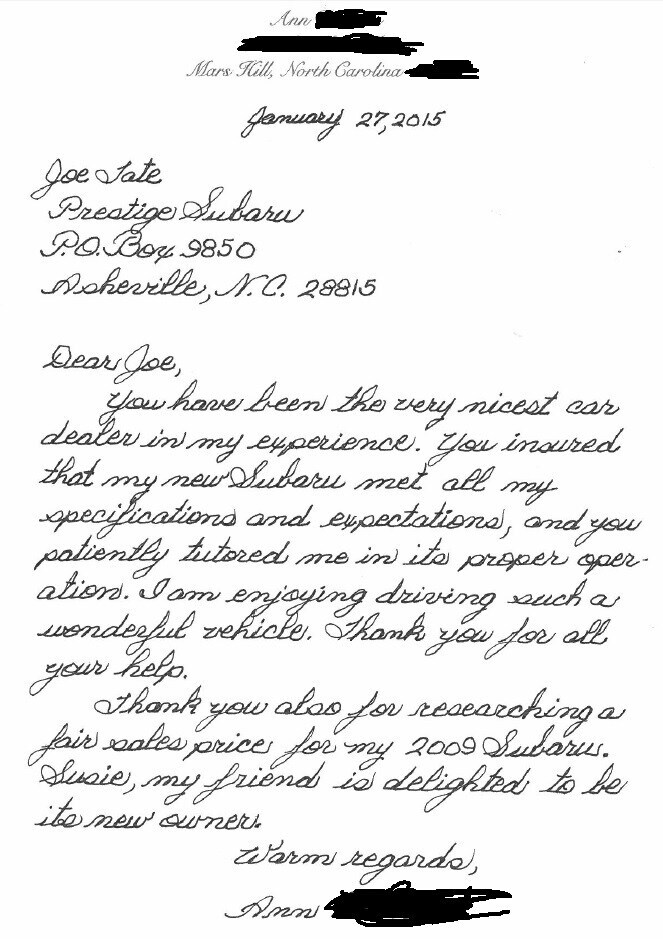 Ann
Mars Hill, North Carolina
January 27, 2015
Joe Tate
Prestige Subaru
P.O. Box 9850
Asheville, N.C. 28815
Dear Joe,
You have been the very nicest car
dealer in my experience. You insured
that my new Subaru met all my
specifications and expectations, and you
patiently tutored me in its proper oper-
ation. I am enjoying driving such a
wonderful vehicle. Thank you for all
your help.
Thank you also for researching a
fair sales price for my 2009 Subaru.
Susie, my friend is delighted to be
its new owner.
Warm regards,
Ann